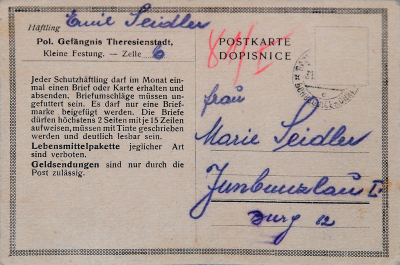 Häftling Emil Seidler
Pol. Gefängnis Theresienstadt,
Kleine Festung. — Zelle 6
Jeder Schutzhäftling darf im Monat ein-
mal einen Brief oder Karte erhalten und
absenden. Briefumschläge müssen un-
gefuttert sein. Es darf nur eine Brief-
marke beigefügt werden. Die Briefe
dürfen höchstens 2 Seiten mit je 15 Zeilen
aufweisen, müssen mit Tinte geschrieben
werden und deutlich lesbar sein.
Lebensmittelpakete jeglicher Art
sind verboten.
Geldsendungen sind nur durch die
Post zulässig.
POSTKARTE
DOPISNICE
Frau
Marie Seidler
Jungbunzlau I
Burg 12